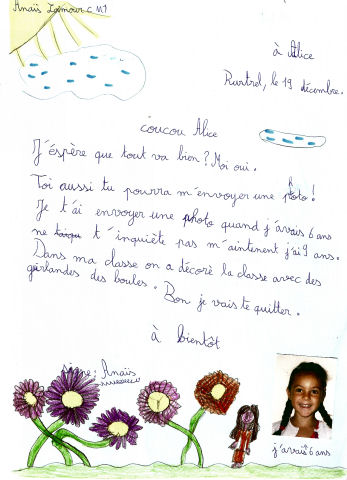 Anaïs Lamour CM1
à Alice
Rurtrel, le 19 décembre.
coucou Alice
J'éspère que tout va bien ? Moi oui.
Toi aussi tu pourra m'envoyer une photo !
Je t'ai envoyer une photo quand j'avais 6 ans
ne t'inquiète pas m'aintenent j'ai 9 ans.
Dans ma classe on a décoré la classe avec des
guirlandes des boules.
Bon je vais te quitter.
à bientôt
signe : Anaïs
j'avais 6 ans